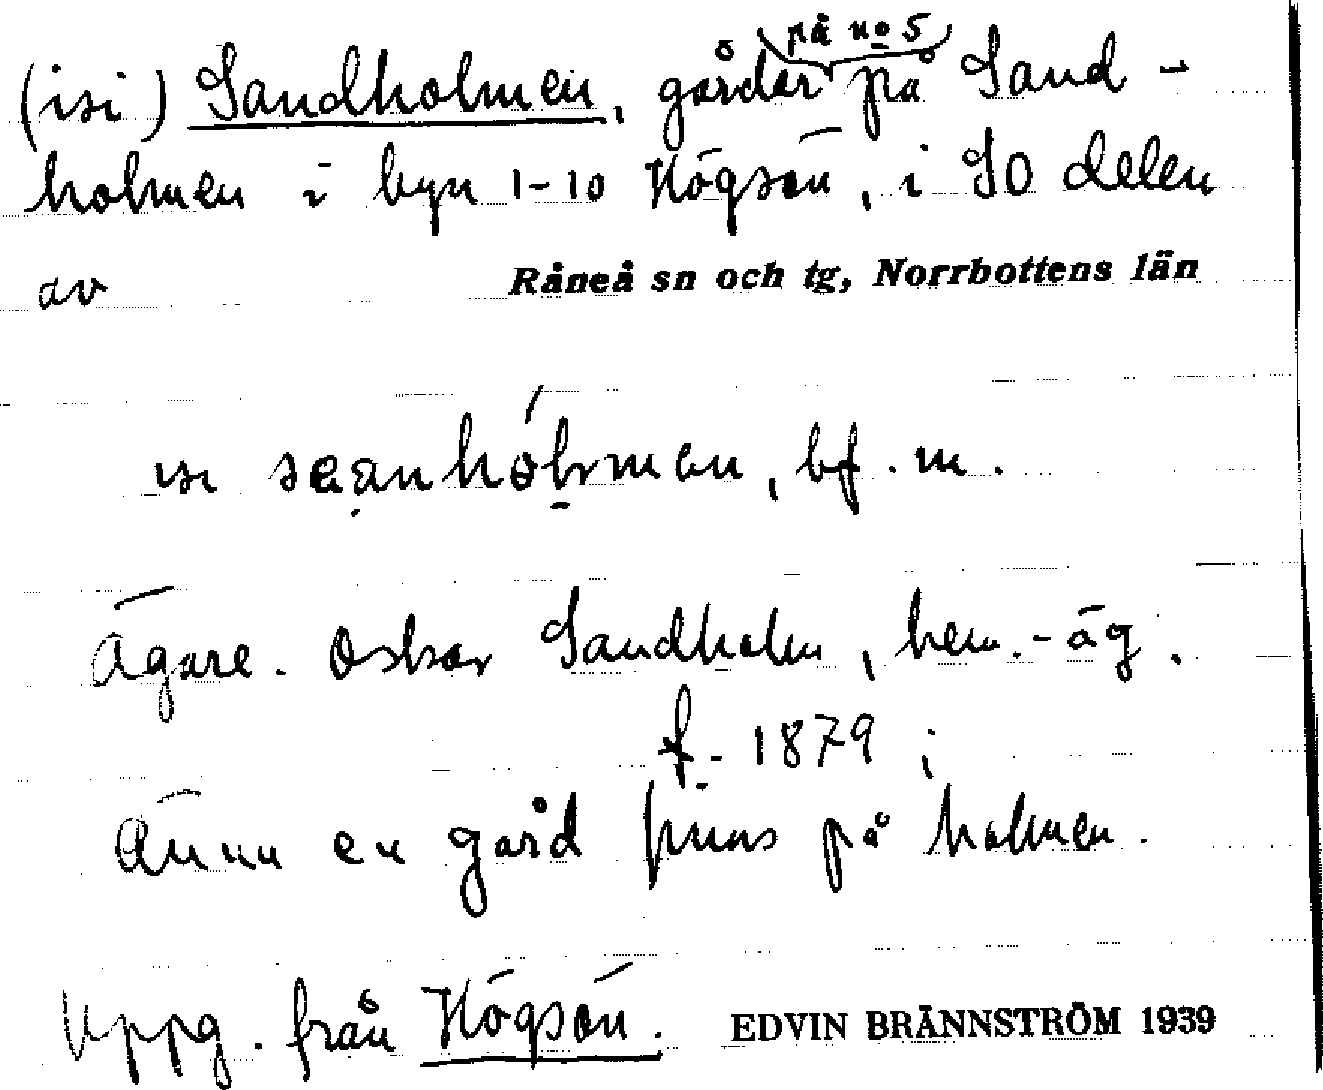 på no 5
(isi) Sandholmen, gårdar på Sand-
holmen i byn 1-10 Högsön, i SO delen
av Råneå sn och tg, Norrbottens län
bf. m.
Ägare. Oskar Sandholm, hem.-äg.
f. 1879;
Ännu en gård finns på holmen.
Uppg. från Högsön. EDVIN BRÄNNSTRÖM 1939